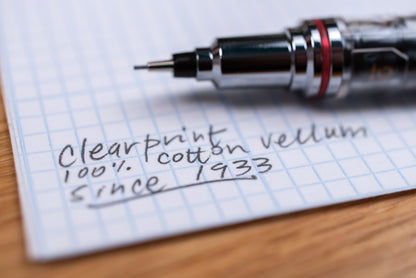 Clearprint vellum
100% cotton
since 1933